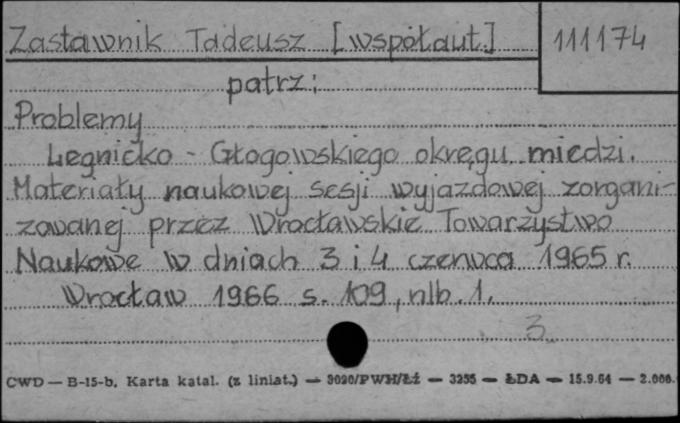 Zastawnik Tadeusz [współaut.] 111174
patrz:
Problemy
Legnicko - Głogowskiego okręgu miedzi.
Materiały naukowej sesji wyjazdowej zorgani-
zowanej przez Wrocławskie Towarzystwo
Naukowe w dniach 3 i 4 czerwca 1965 r.
Wrocław 1966 s. 109, nlb. 1.
3
CWD — B-15-b. Karta katal. (z liniat.) — 3020/PWH/Łź — 3255 — ŁDA — 15.9.64 — 2.000.